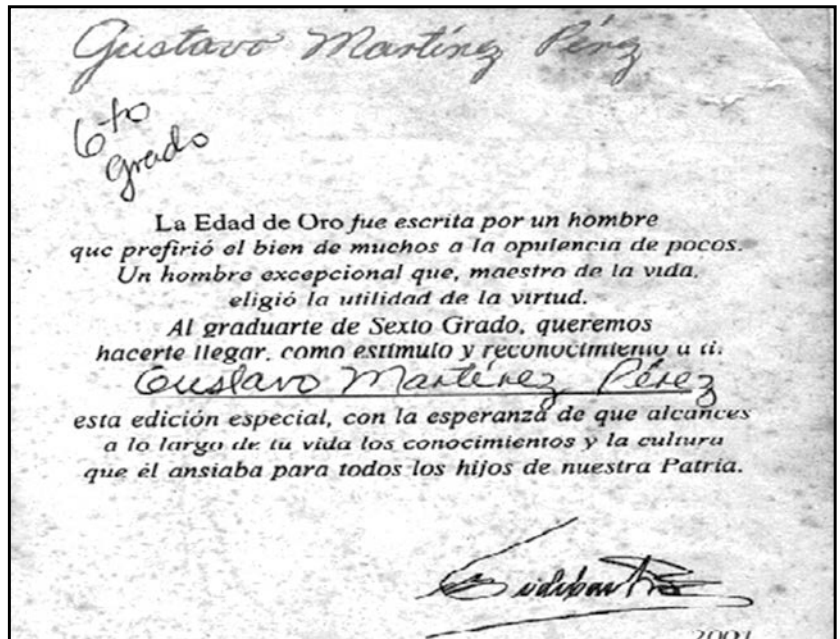 Gustavo Martínez Pérez
6to
grado
La Edad de Oro fue escrita por un hombre
que prefirió el bien de muchos a la opulencia de pocos.
Un hombre excepcional que, maestro de la vida,
eligió la utilidad de la virtud.
Al graduarte de Sexto Grado, queremos
hacerte llegar, como estímulo y reconocimiento a ti.
Gustavo Martínez Pérez
esta edición especial, con la esperanza de que alcances
a lo largo de tu vida los conocimientos y la cultura
que él ansiaba para todos los hijos de nuestra Patria.